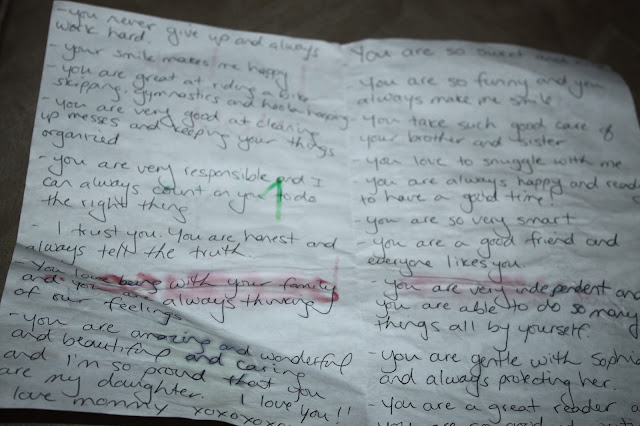 - you never give up and always
work hard
- your smile makes me happy
- you are great at riding a bike
skipping, gymnastics and hoola hooping
- you are very good at cleaning
up messes and keeping your things
organized
- you are very responsible and I
can always count on you to do
the right thing
- I trust you. You are honest and
always tell the truth.
- You love being with your family
and you are always thinking
of our feelings
- you are amazing and wonderful
and beautiful and caring
and I'm so proud that you
are my daughter. I love you!!
love mommy xoxoxox
You are so sweet and
- You are so funny and you
always make me smile
- You take such good care of
your brother and sister
- you love to snuggle with me
- you are always happy and read
to have a good time!
- you are so very smart
- you are a good friend and
everyone likes you
- you are very independent and
you are able to do so many
things all by yourself.
- you are gentle with Sophi
and always protecting her.
- you are a great reader a